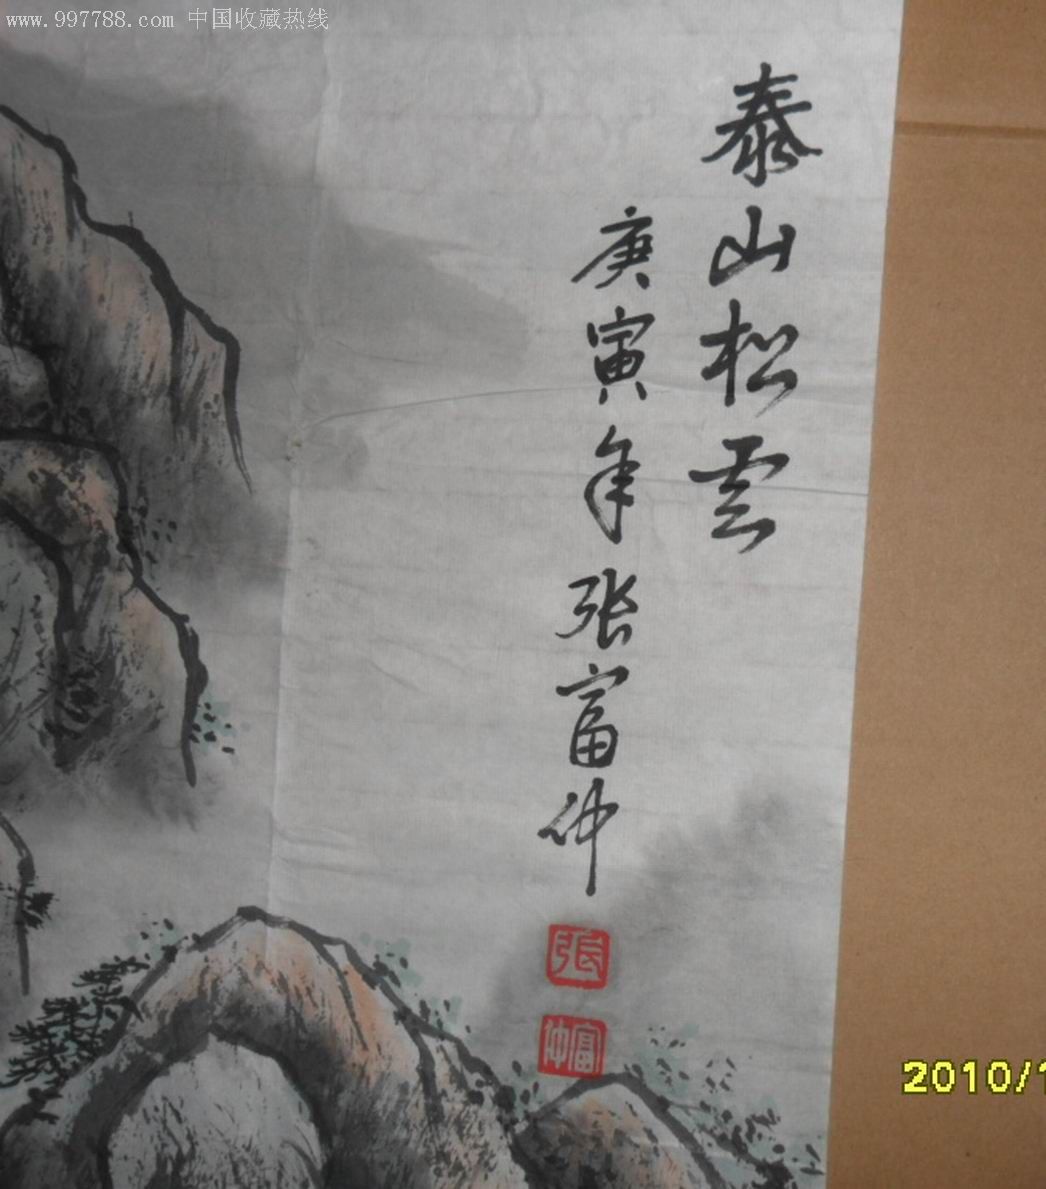 www.997788.com 中国收藏热线
泰山松雲
庚寅年张富仲
張
富仲
2010/1